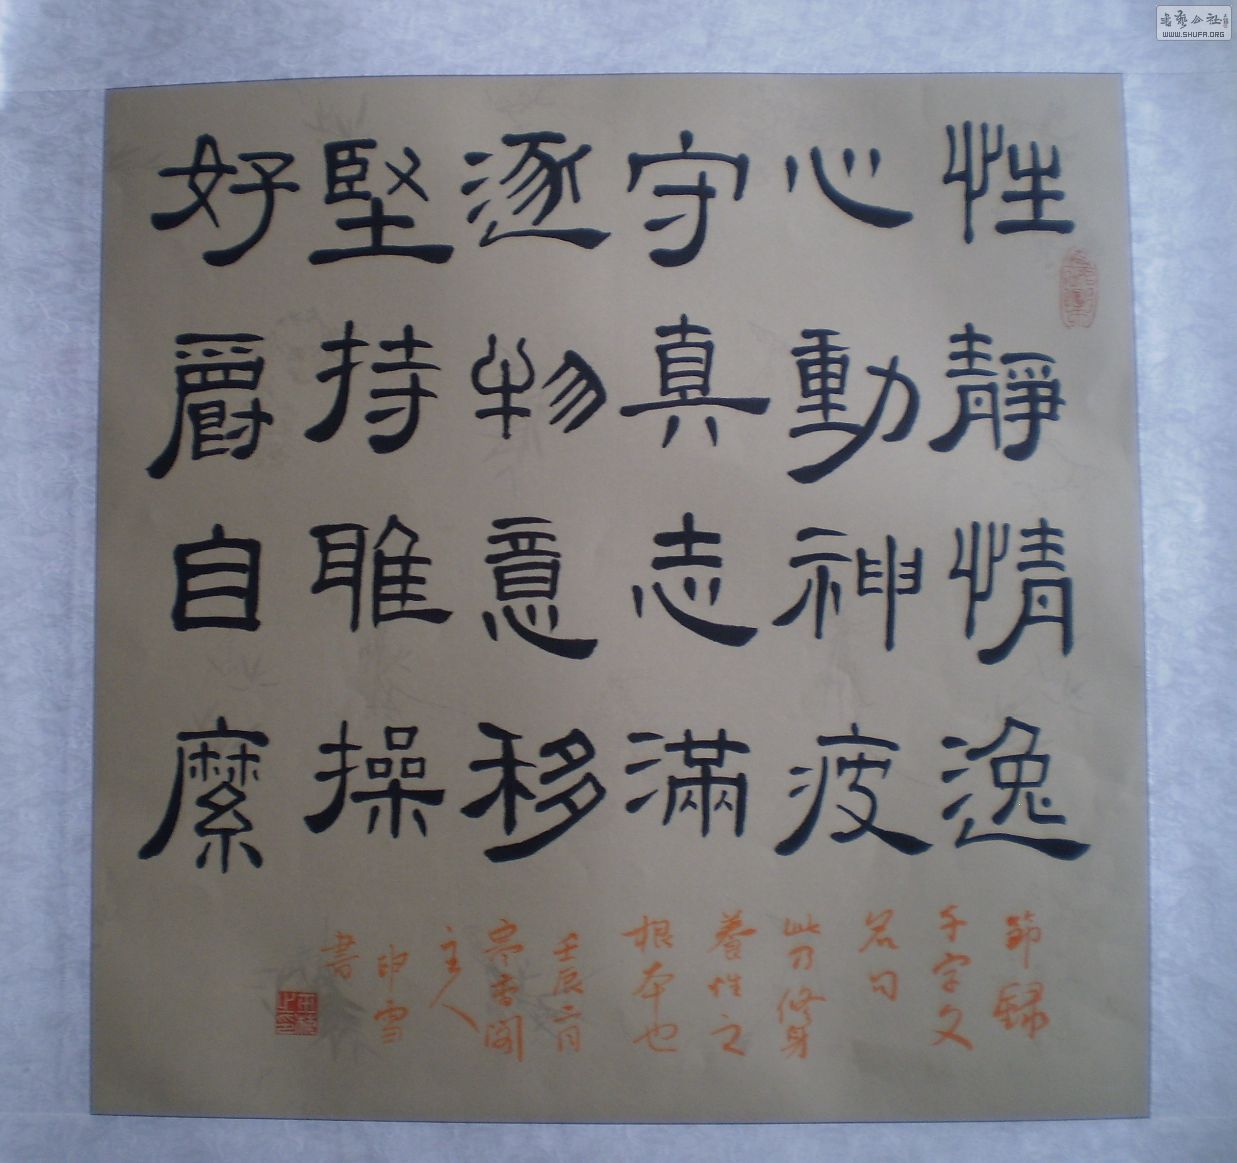 性靜情逸
心動神疲
守真志滿
逐物意移
堅持雅操
好爵自縻
節歸
千字文
名句
此乃修身
養性之
根本也
壬辰二月
寒香閣
主人
申雪
書
书艺公社
WWW.SHUFA.ORG